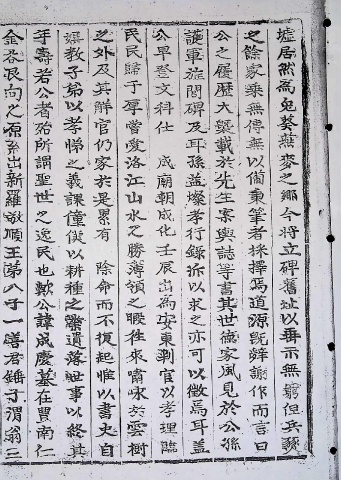 墟居然爲兔葵燕麥之鄕今將立碑舊址以再示無窮但兵燹
之餘家乘無傳無以備秉筆者採擇焉道源旣辭謝作而言曰
公之履歷大槩載於先生案輿誌等書其世德家風見於公孫
護軍旌閭碑及耳孫益燦孝行錄拆以求之亦可以徵焉耳盖
公早登文科仕 成廟朝成化壬辰出為安東判官以孝理臨
民民歸于厚嘗愛洛江山水之勝簿領之暇徃來嘯咏於雲樹
之外及其解官仍家於是累有 除命而不復起惟以書史自
娛教子弟以孝悌之義課僮僕以耕種之業遺落世事以終其
年壽若公者殆所謂聖世之逸民也歟公諱成慶墓在豊南仁
金谷艮向之原系出新羅敬順王第八子一善君錘于渭翁三